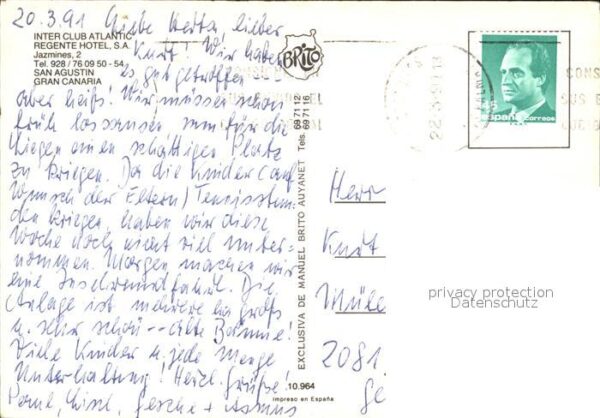 20.3.91 Liebe Herta, lieber
Kurt! Wir haben
es gut getroffen
aber heiß! Wir müssen schon
früh lossausen um für die
Liegen einen schattigen Platz
zu kriegen. Da die Kinder (auf
Wunsch der Eltern) Tennisstun-
den kriegen, haben wir diese
Woche noch nicht viel unter-
nommen. Morgen machen wir
eine Inselrundfahrt. Die
Anlage ist mehrere ha groß
u. sehr schön -- alte Bäume!
Viele Kinder u. jede Menge
Unterhaltung! Herzl. Grüße!
Gesche + Asmus
INTER CLUB ATLANTIC
REGENTE HOTEL, S.A.
Jazmines, 2
Tel. 928 / 76 09 50 - 54
SAN AGUSTIN
GRAN CANARIA
BRITO
EXCLUSIVA DE MANUEL BRITO AUYANET Tels. 69 71 12 69 71 16
10.964
Impreso en España
España correos
CONS
SUS
Herr
Kurt
2081
privacy protection
Datenschutz